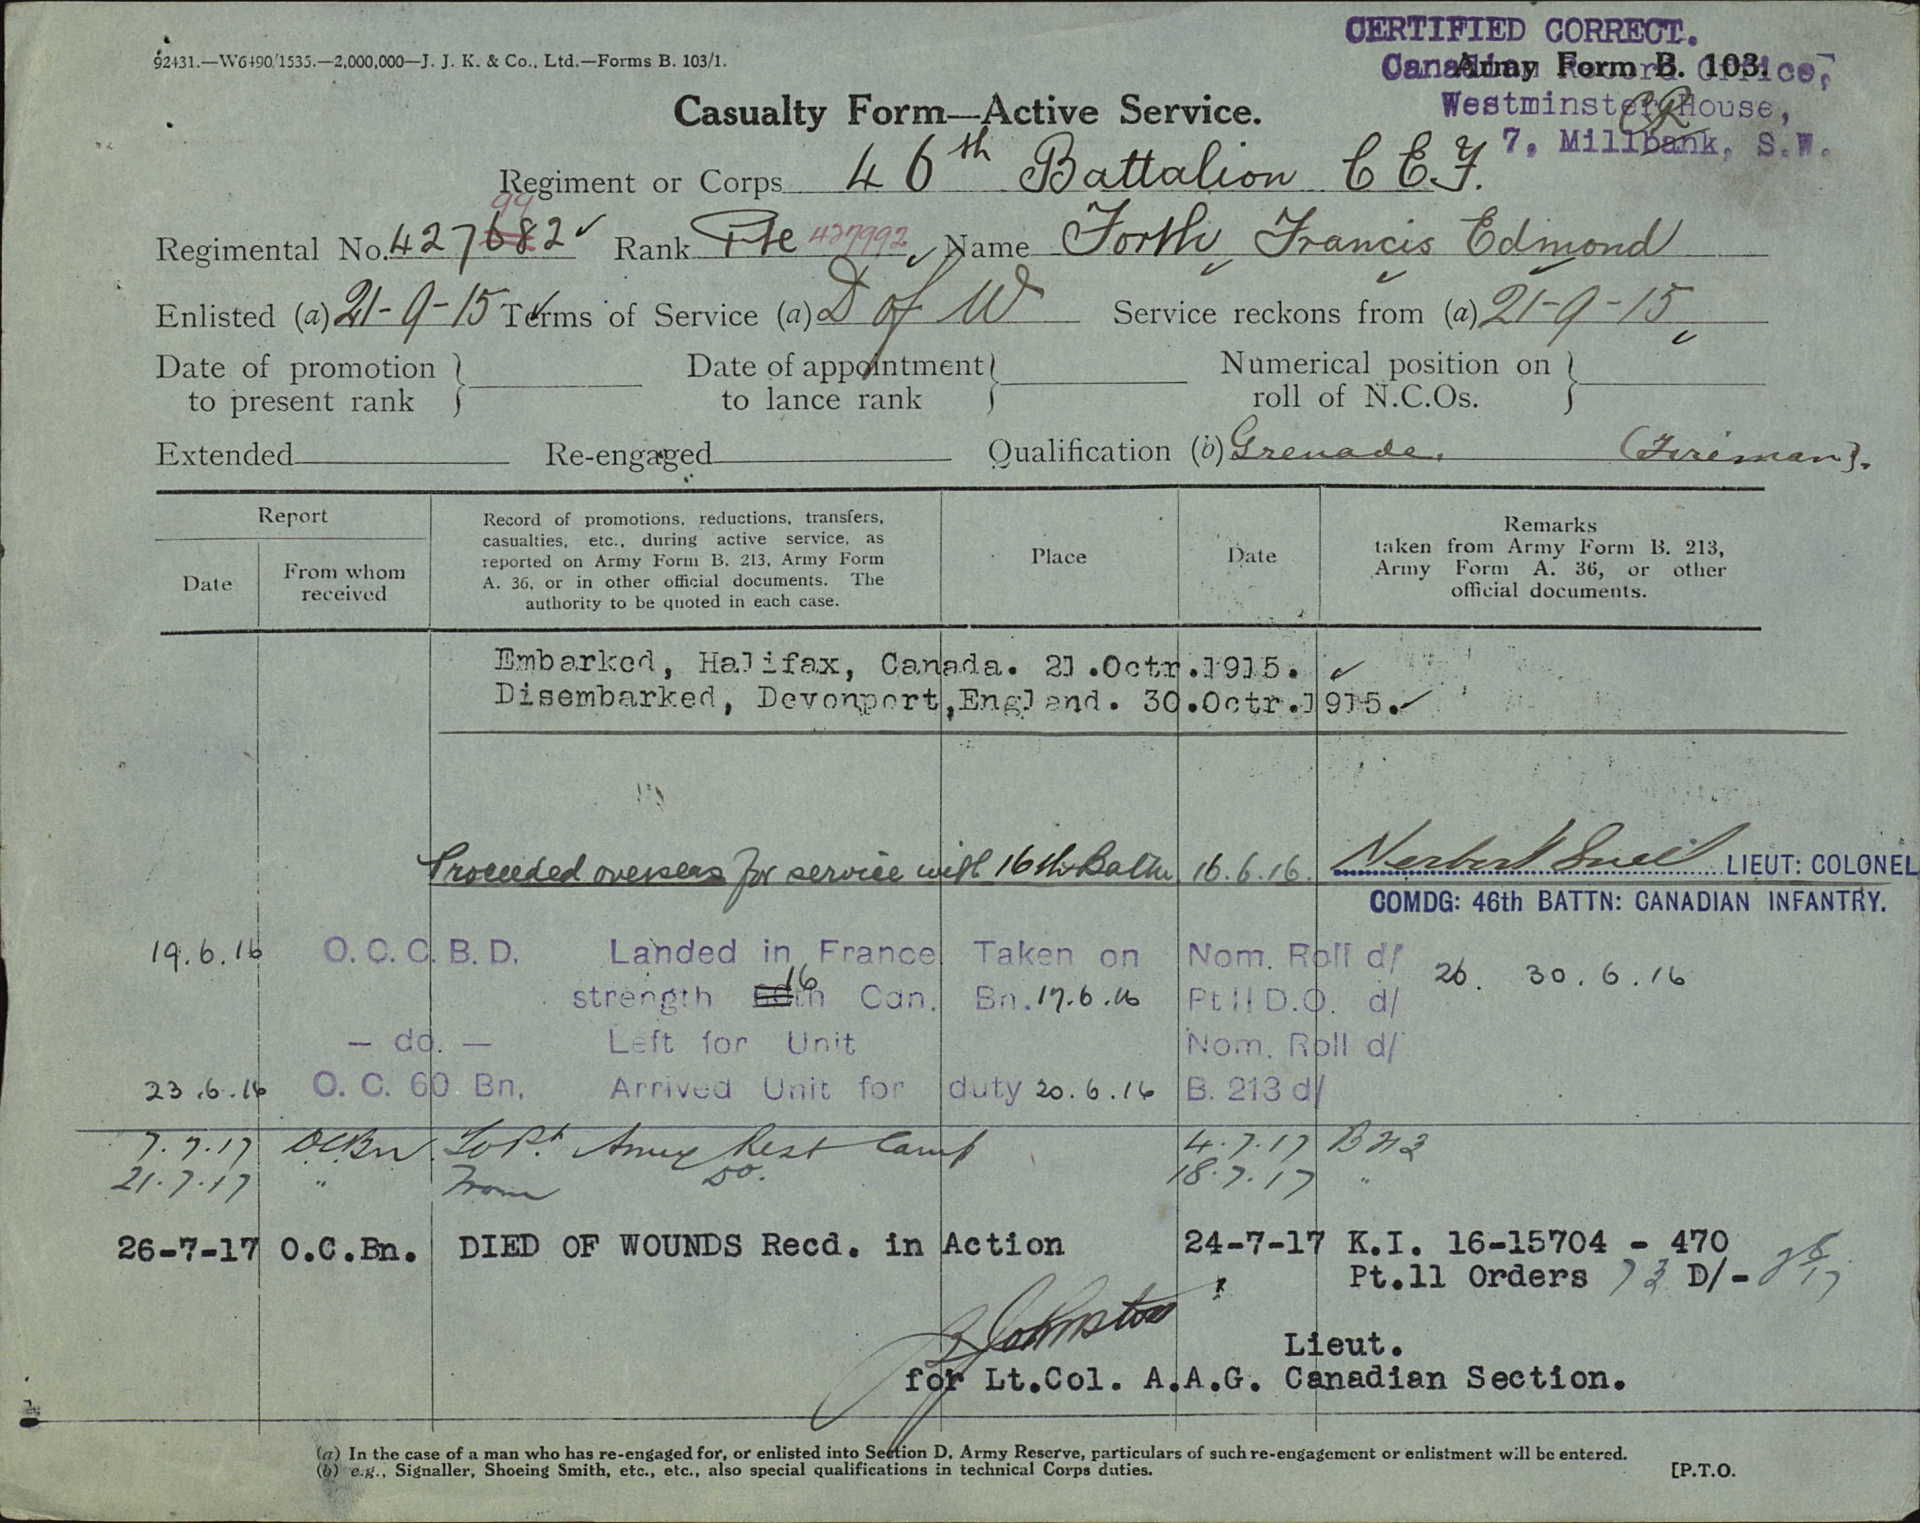 92431.—W6490/1535.—2,000,000—J. J. K. & Co., Ltd.—Forms B. 103/1.
CERTIFIED CORRECT.
Army Form B. 103.
Canadian Record Office,
Westminster House,
7, Millbank, S.W.
Casualty Form—Active Service.
Regiment or Corps 46th Battalion C E F.
99
Regimental No. 427682 Rank Pte 427992 Name Forth, Francis Edmond
Enlisted (a) 21-9-15 Terms of Service (a) D of W Service reckons from (a) 21-9-15
Date of promotion to present rank } Date of appointment to lance rank } Numerical position on roll of N.C.Os. }
Extended Re-engaged Qualification (b) Grenade. (Fireman).
Report
Date
From whom received
Record of promotions, reductions, transfers,
casualties, etc., during active service, as
reported on Army Form B. 213, Army Form
A. 36, or in other official documents. The
authority to be quoted in each case.
Place
Date
Remarks
taken from Army Form B. 213,
Army Form A. 36, or other
official documents.
Embarked, Halifax, Canada. 21.Octr.1915.
Disembarked, Devonport, England. 30.Octr.1915.
Proceeded overseas for service with 16th Battn 16.6.16. LIEUT: COLONEL
COMDG: 46th BATTN: CANADIAN INFANTRY.
19.6.16 O.C.C.B.D. Landed in France Taken on Nom. Roll d/
strength 16 th Can. Bn. 17.6.16 Pt II D.O. d/ 26. 30.6.16
— do. — Left for Unit Nom. Roll d/
23.6.16 O. C. 60 Bn. Arrived Unit for duty 20.6.16 B. 213 d/
7.7.17 OC Bn To Army Rest Camp 4.7.17 B 213
21.7.17 " From Do. 18.7.17 "
26-7-17 O.C.Bn. DIED OF WOUNDS Recd. in Action 24-7-17 K.I. 16-15704 - 470
Pt.11 Orders 73 D/-
Johnston
Lieut.
for Lt.Col. A.A.G. Canadian Section.
(a) In the case of a man who has re-engaged for, or enlisted into Section D, Army Reserve, particulars of such re-engagement or enlistment will be entered.
(b) e.g., Signaller, Shoeing Smith, etc., etc., also special qualifications in technical Corps duties.
[P.T.O.